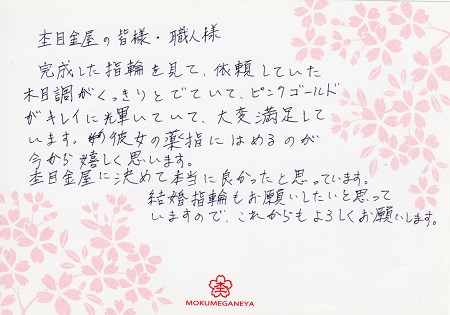 杢目金屋の皆様・職人様
完成した指輪を見て、依頼していた
木目調がくっきりとでていて、ピンクゴールド
がキレイに光輝いていて、大変満足して
います。彼女の薬指にはめるのが
今から嬉しく思います。
杢目金屋に決めて本当に良かったと思っています。
結婚指輪もお願いしたいと思って
いますので、これからもよろしくお願いします。
杢
MOKUMEGANEYA